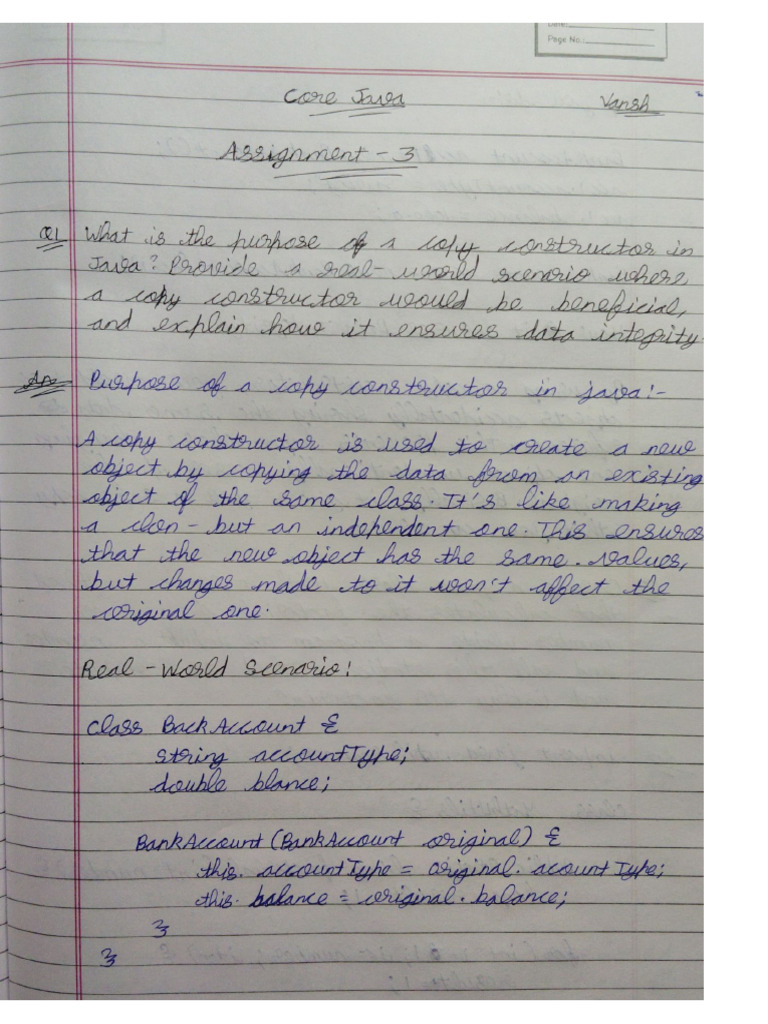 Page No.:
Core Java Vansh
Assignment - 3
Q1 What is the purpose of a copy constructor in
Java? Provide a real-world scenario where
a copy constructor would be beneficial,
and explain how it ensures data integrity.
Ans Purpose of a copy constructor in java:-
A copy constructor is used to create a new
object by copying the data from an existing
object of the same class. It's like making
a clon - but an independent one. This ensures
that the new object has the same. values,
but changes made to it won't affect the
original one.
Real - World Scenario:
class BackAccount {
string accountType;
double blance;
BankAccount (BankAccount original) {
this. accountType = original. acountType;
this. balance = original. balance;
}
}